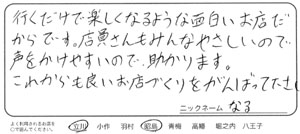 行くだけで楽しくなるような面白いお店だ
からです。店員さんもみんなやさしいので
声をかけやすいので、助かります。
これからも良いお店づくりをがんばってださい
ニックネーム なる
よく利用されるお店を
○で囲んでください。
立川 小作 羽村 昭島 青梅 高幡 堀之内 八王子